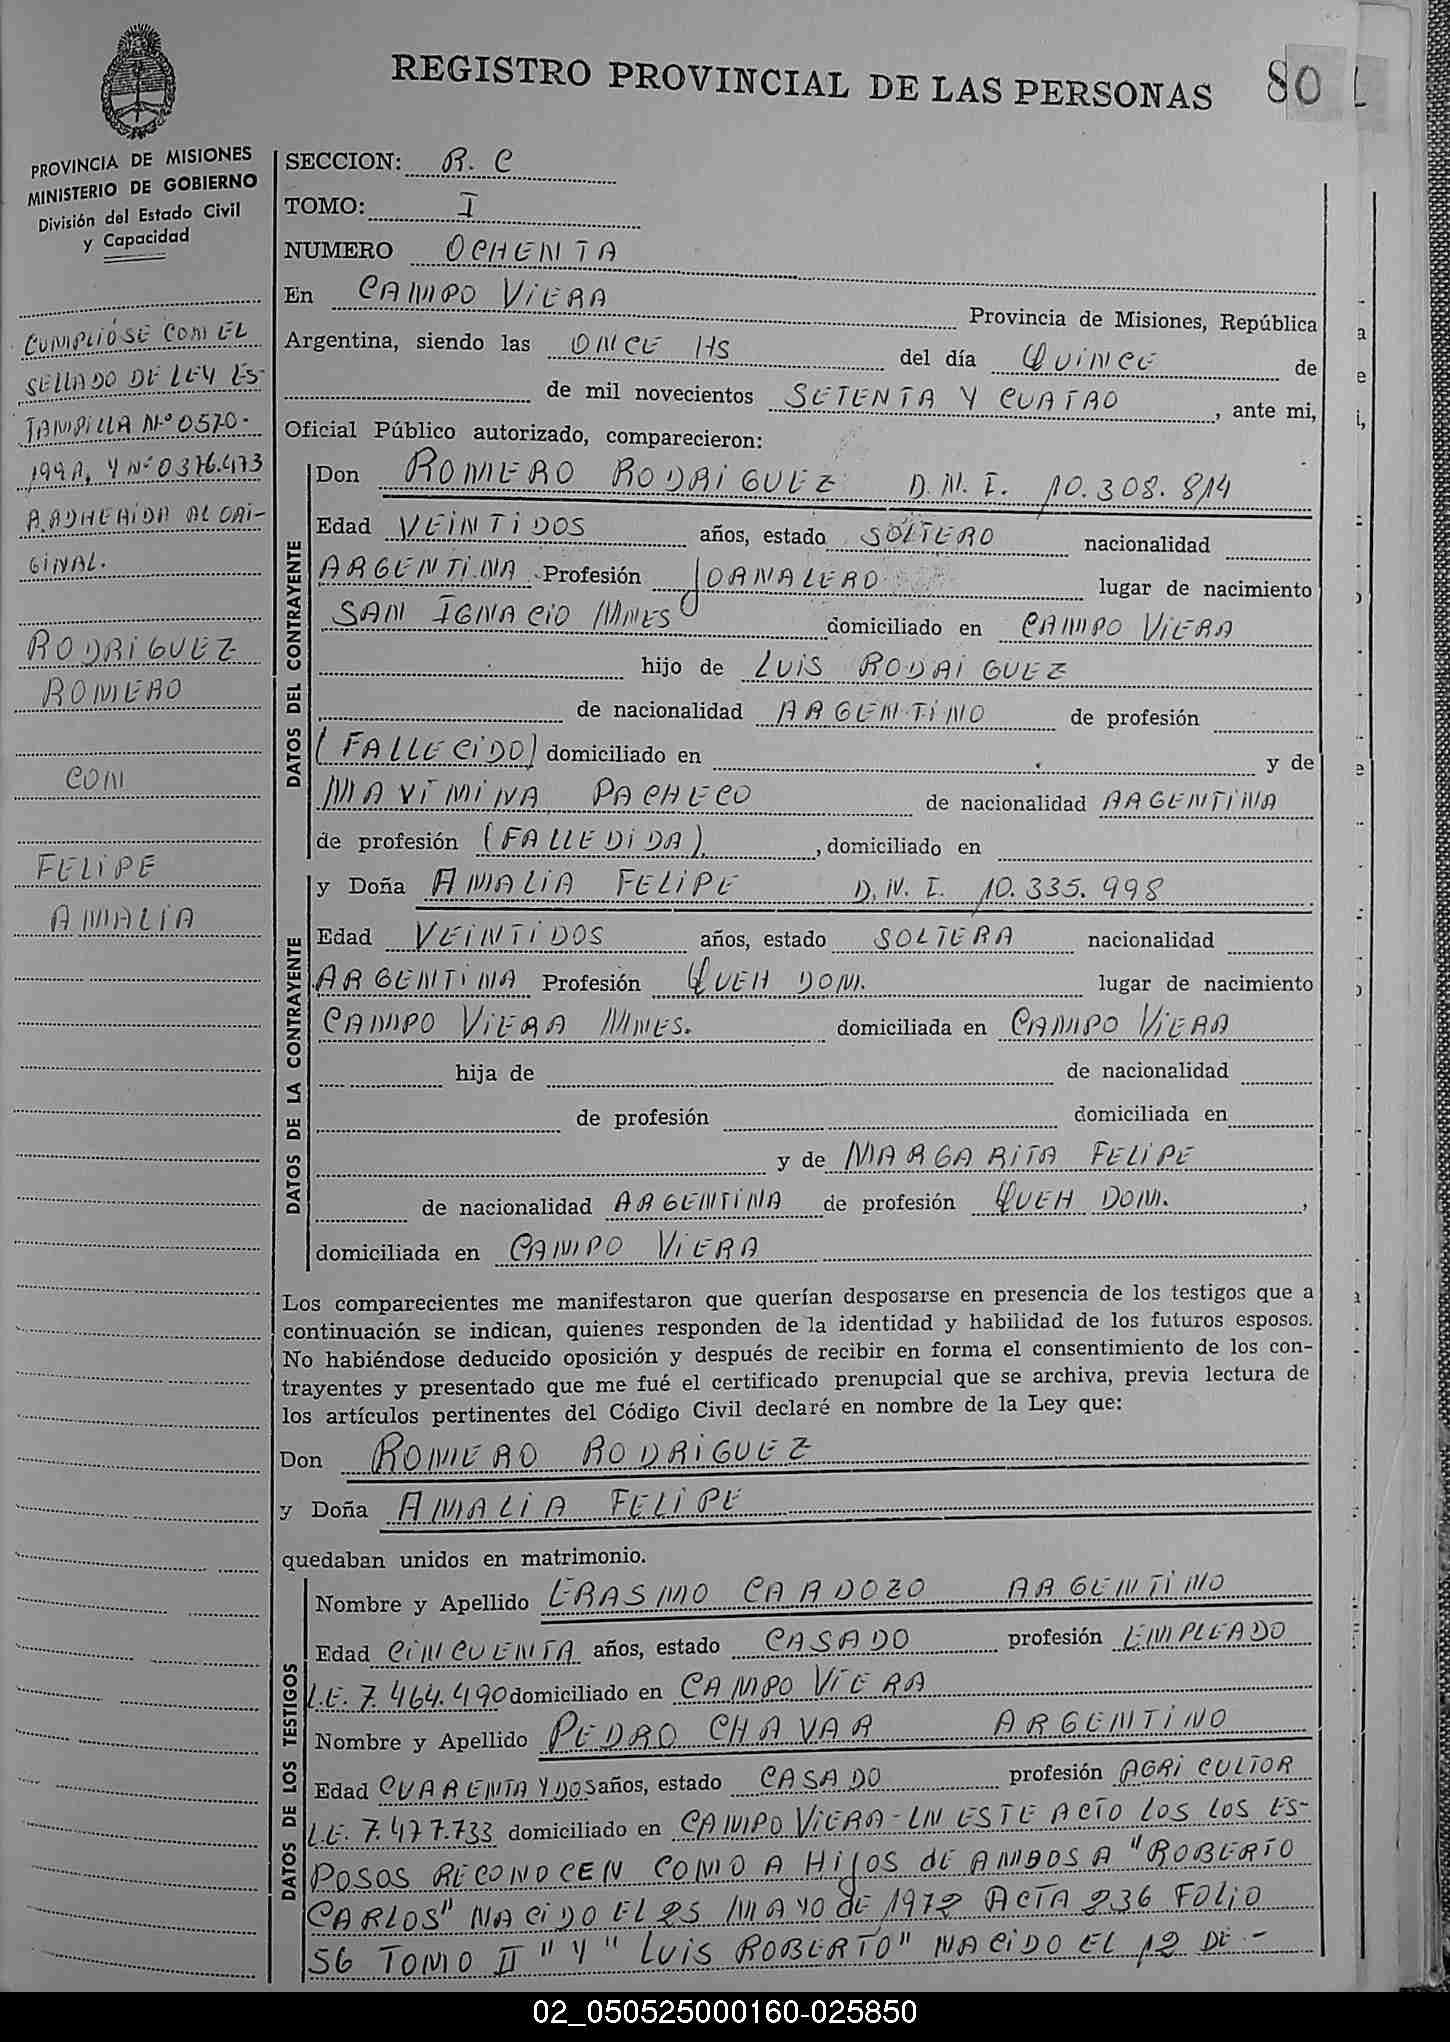 REGISTRO PROVINCIAL DE LAS PERSONAS
80
PROVINCIA DE MISIONES
MINISTERIO DE GOBIERNO
División del Estado Civil
y Capacidad
CUMPLIÓSE CON EL
SELLADO DE LEY ES-
TAMPILLA Nº 0570-
199A, Y Nº 0376.473
A, ADHERIDA AL ORI-
GINAL.
RODRIGUEZ
ROMERO
CON
FELIPE
AMALIA
SECCION: R. C
TOMO: I
NUMERO OCHENTA
En CAMPO VIERA Provincia de Misiones, República
Argentina, siendo las ONCE HS del día QUINCE de
de mil novecientos SETENTA Y CUATRO, ante mi,
Oficial Público autorizado, comparecieron:
DATOS DEL CONTRAYENTE
Don ROMERO RODRIGUEZ D.N.I. 10.308.814
Edad VEINTIDOS años, estado SOLTERO nacionalidad
ARGENTINA Profesión JORNALERO lugar de nacimiento
SAN IGNACIO MNES domiciliado en CAMPO VIERA
hijo de LUIS RODRIGUEZ
de nacionalidad ARGENTINO de profesión
(FALLECIDO) domiciliado en y de
MAXIMINA PACHECO de nacionalidad ARGENTINA
de profesión (FALLEDIDA), domiciliado en
DATOS DE LA CONTRAYENTE
y Doña AMALIA FELIPE D.N.I. 10.335.998
Edad VEINTIDOS años, estado SOLTERA nacionalidad
ARGENTINA Profesión QUEH DOM. lugar de nacimiento
CAMPO VIERA MNES. domiciliada en CAMPO VIERA
hija de de nacionalidad
de profesión domiciliada en
y de MARGARITA FELIPE
de nacionalidad ARGENTINA de profesión QUEH DOM.,
domiciliada en CAMPO VIERA
Los comparecientes me manifestaron que querían desposarse en presencia de los testigos que a
continuación se indican, quienes responden de la identidad y habilidad de los futuros esposos.
No habiéndose deducido oposición y después de recibir en forma el consentimiento de los con-
trayentes y presentado que me fué el certificado prenupcial que se archiva, previa lectura de
los artículos pertinentes del Código Civil declaré en nombre de la Ley que:
Don ROMERO RODRIGUEZ
y Doña AMALIA FELIPE
quedaban unidos en matrimonio.
DATOS DE LOS TESTIGOS
Nombre y Apellido ERASMO CARDOZO ARGENTINO
Edad CINCUENTA años, estado CASADO profesión EMPLEADO
L.E. 7.464.490 domiciliado en CAMPO VIERA
Nombre y Apellido PEDRO CHAVAR ARGENTINO
Edad CUARENTA Y DOS años, estado CASADO profesión AGRICULTOR
L.E. 7.477.733 domiciliado en CAMPO VIERA - EN ESTE ACTO LOS LOS ES-
POSOS RECONOCEN COMO A HIJOS dE AMBOS A "ROBERTO
CARLOS" NACIDO EL 25 MAYO dE 1972 ACTA 236 FOLIO
56 TOMO II" Y "LUIS ROBERTO" NACIDO EL 12 DE -
02_050525000160-025850